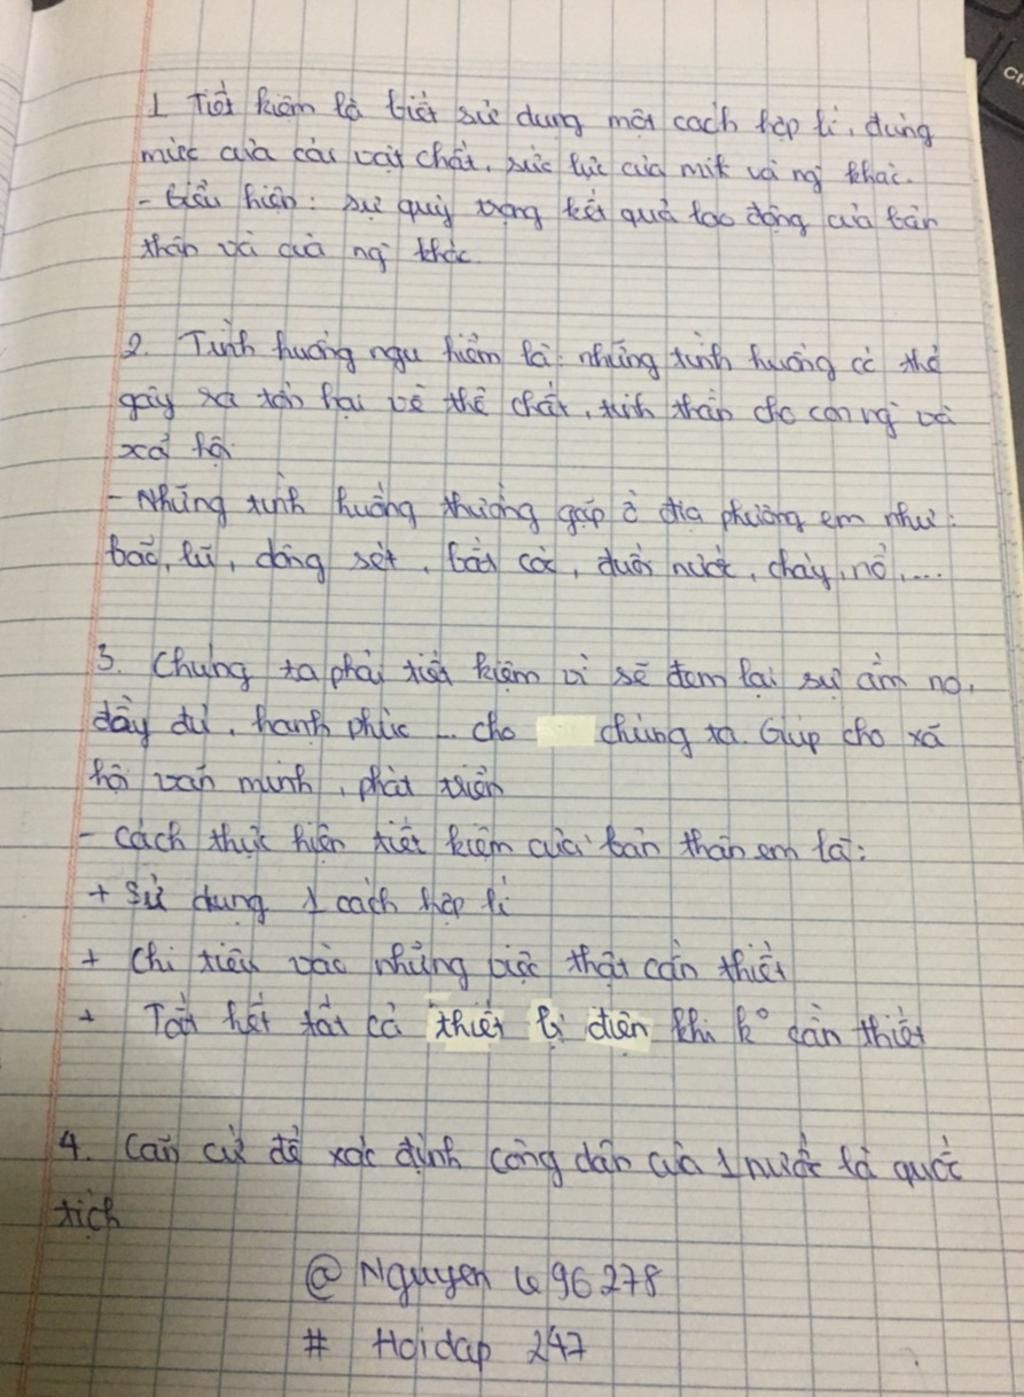 1 Tiết kiệm là biết sử dụng một cách hợp lí, đúng
mức của cải vật chất, sức lực của mik và ng khác.
- Biểu hiện: sự quý trọng kết quả lao động của bản
thân và của ng khác.
2. Tình huống nguy hiểm là: những tình huống có thể
gây ra tổn hại về thể chất, tinh thần cho con ng và
xã hội
- Những tình huống thường gặp ở địa phương em như:
bão, lũ, dông sét, bắt cóc, đuối nước, cháy, nổ,...
3. Chúng ta phải tiết kiệm vì sẽ đem lại sự ấm no,
đầy đủ, hạnh phúc ... cho chúng ta. Giúp cho xã
hội văn minh, phát triển
- Cách thực hiện tiết kiệm của bản thân em là:
+ Sử dụng 1 cách hợp lí
+ Chi tiêu vào những việc thật cần thiết
+ Tắt hết tất cả thiết bị điện khi k° cần thiết
4. Căn cứ để xác định công dân của 1 nước là quốc
tịch
@ Nguyen le 96278
# Hoidap 247